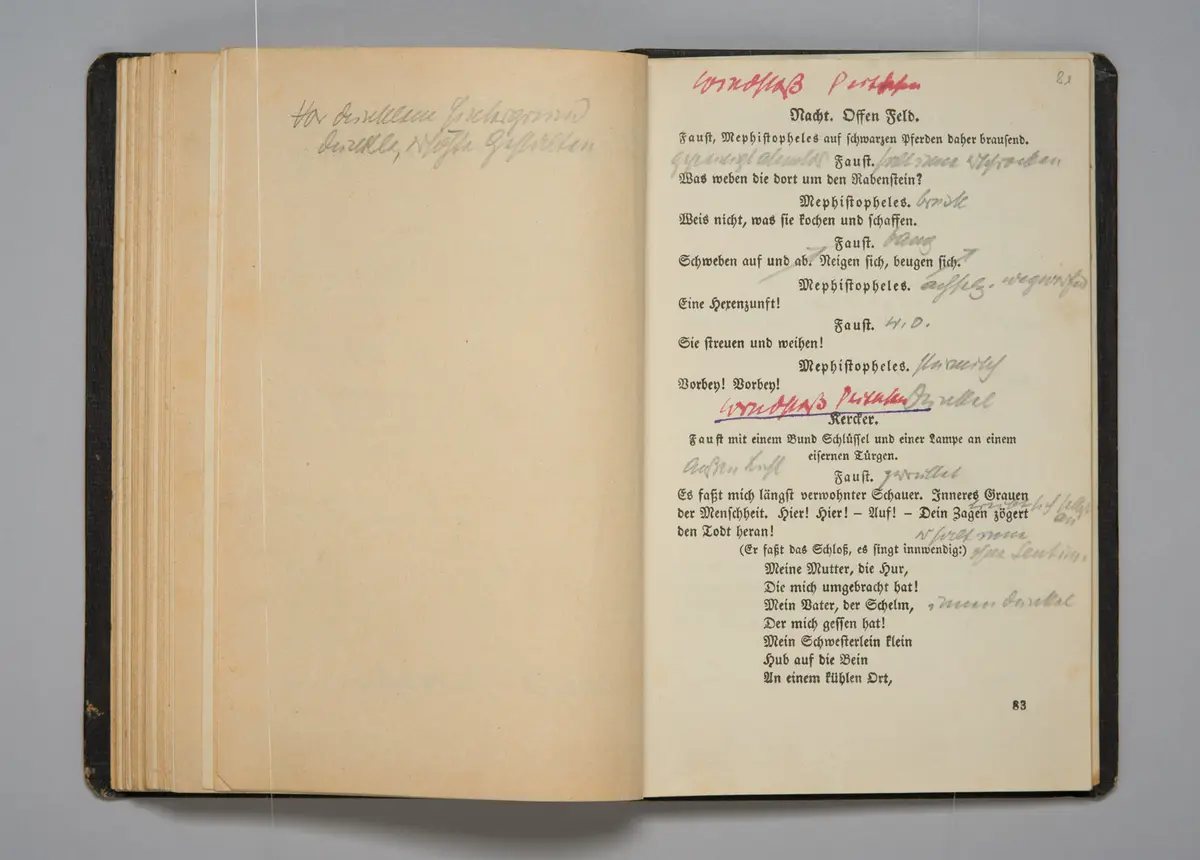 Vor dunklem Hintergrund
dunkle, Gestalten
Windstoß
Nacht. Offen Feld.
Faust, Mephistopheles auf schwarzen Pferden daher brausend.
Faust.
Was weben die dort um den Rabenstein?
Mephistopheles.
Weis nicht, was sie kochen und schaffen.
Faust. bang
Schweben auf und ab. Neigen sich, beugen sich.
Mephistopheles. achselz. wegwerfend
Eine Hexenzunft!
Faust. w. o.
Sie streuen und weihen!
Mephistopheles.
Vorbey! Vorbey!
Windstoß Dunkel
Kercker.
Faust mit einem Bund Schlüssel und einer Lampe an einem
eisernen Türgen.
Faust.
Es faßt mich längst verwohnter Schauer. Inneres Grauen
der Menschheit. Hier! Hier! – Auf! – Dein Zagen zögert
den Todt heran!
(Er faßt das Schloß, es singt innwendig:)
Meine Mutter, die Hur,
Die mich umgebracht hat!
Mein Vater, der Schelm, innen dunkel
Der mich gessen hat!
Mein Schwesterlein klein
Hub auf die Bein
An einem kühlen Ort,
83